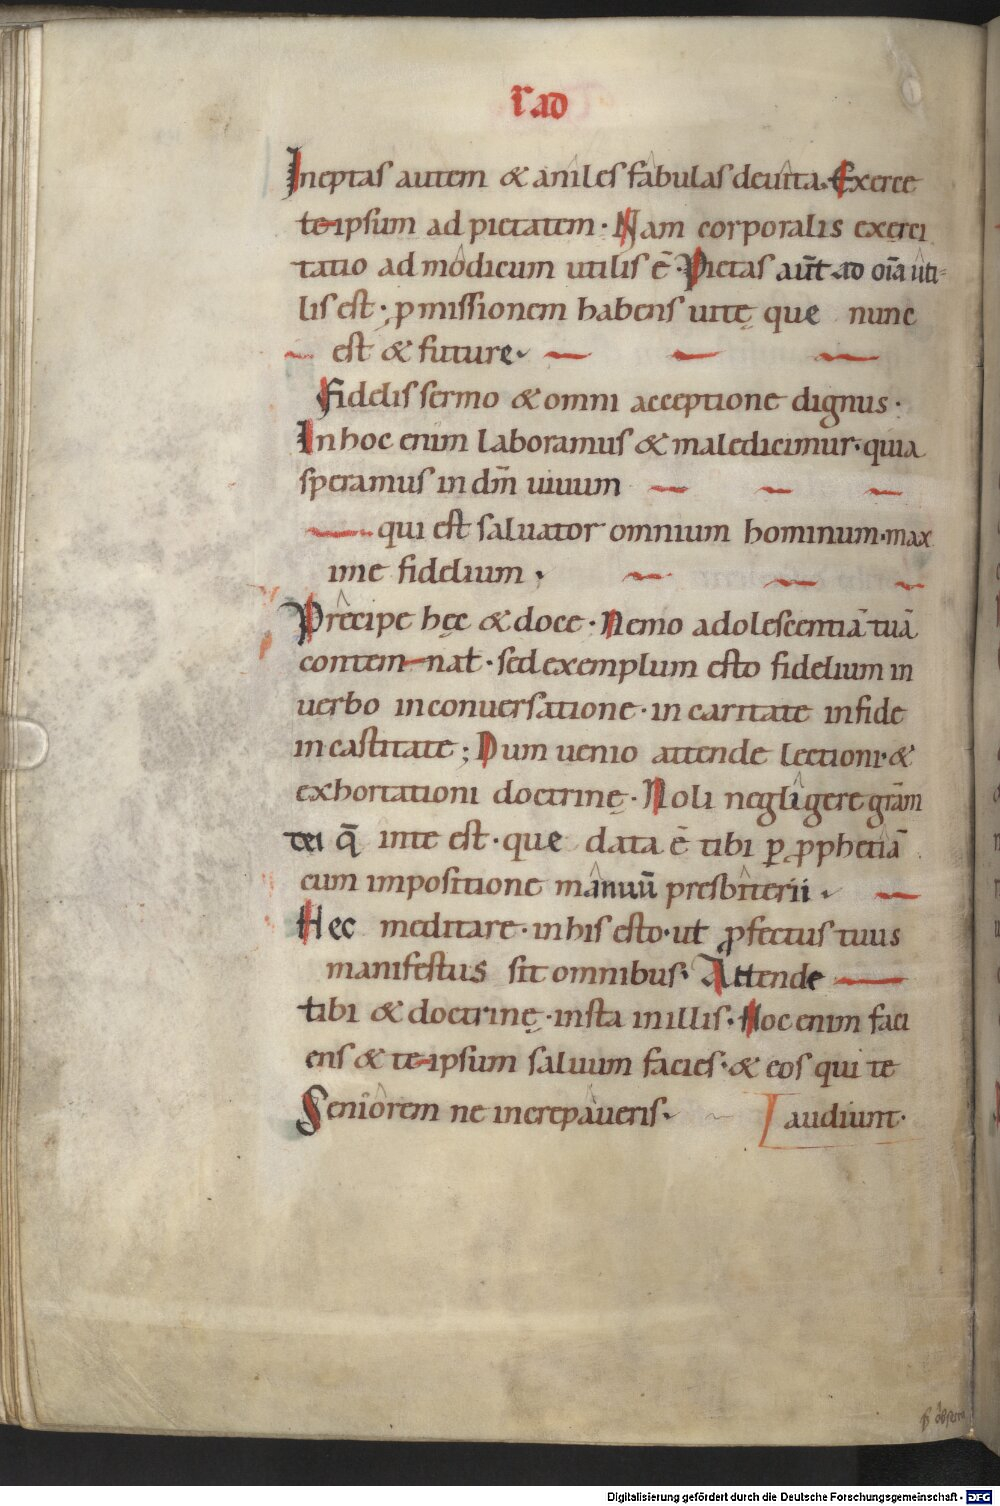 I ad
Ineptas autem & aniles fabulas deuita. Exerce
te ipsum ad pietatem · Nam corporalis exerci
tatio ad modicum utilis ē · Pietas aut̄ ad oīa uti-
lis est · ꝓmissionem habens uitę que nunc
est & future·
Fidelis sermo & omni acceptione dignus ·
In hoc enim laboramus & maledicimur · quia
speramus in dm̄ uiuum
qui est saluator omnium hominum · max
ime fidelium ·
Precipe hęc & doce · Nemo adolescentiā tuā
contem nat · sed exemplum esto fidelium in
uerbo in conuersatione · in caritate in fide
in castitate ; Dum uenio attende lectioni · &
exhortationi doctrinę · Noli negligere grām
dei q̄ in te est · que data ē tibi ꝑ ꝓphetiā
cum impositione manuū presbiterii ·
Hec meditare · in his esto · ut ꝓfectus tuus
manifestus sit omnibus · Attende
tibi & doctrinę · insta in illis · Hoc enim faci
ens & te ipsum saluum facies · & eos qui te
Seniorem ne increpaueris · audiunt ·
Digitalisierung gefördert durch die Deutsche Forschungsgemeinschaft - DFG